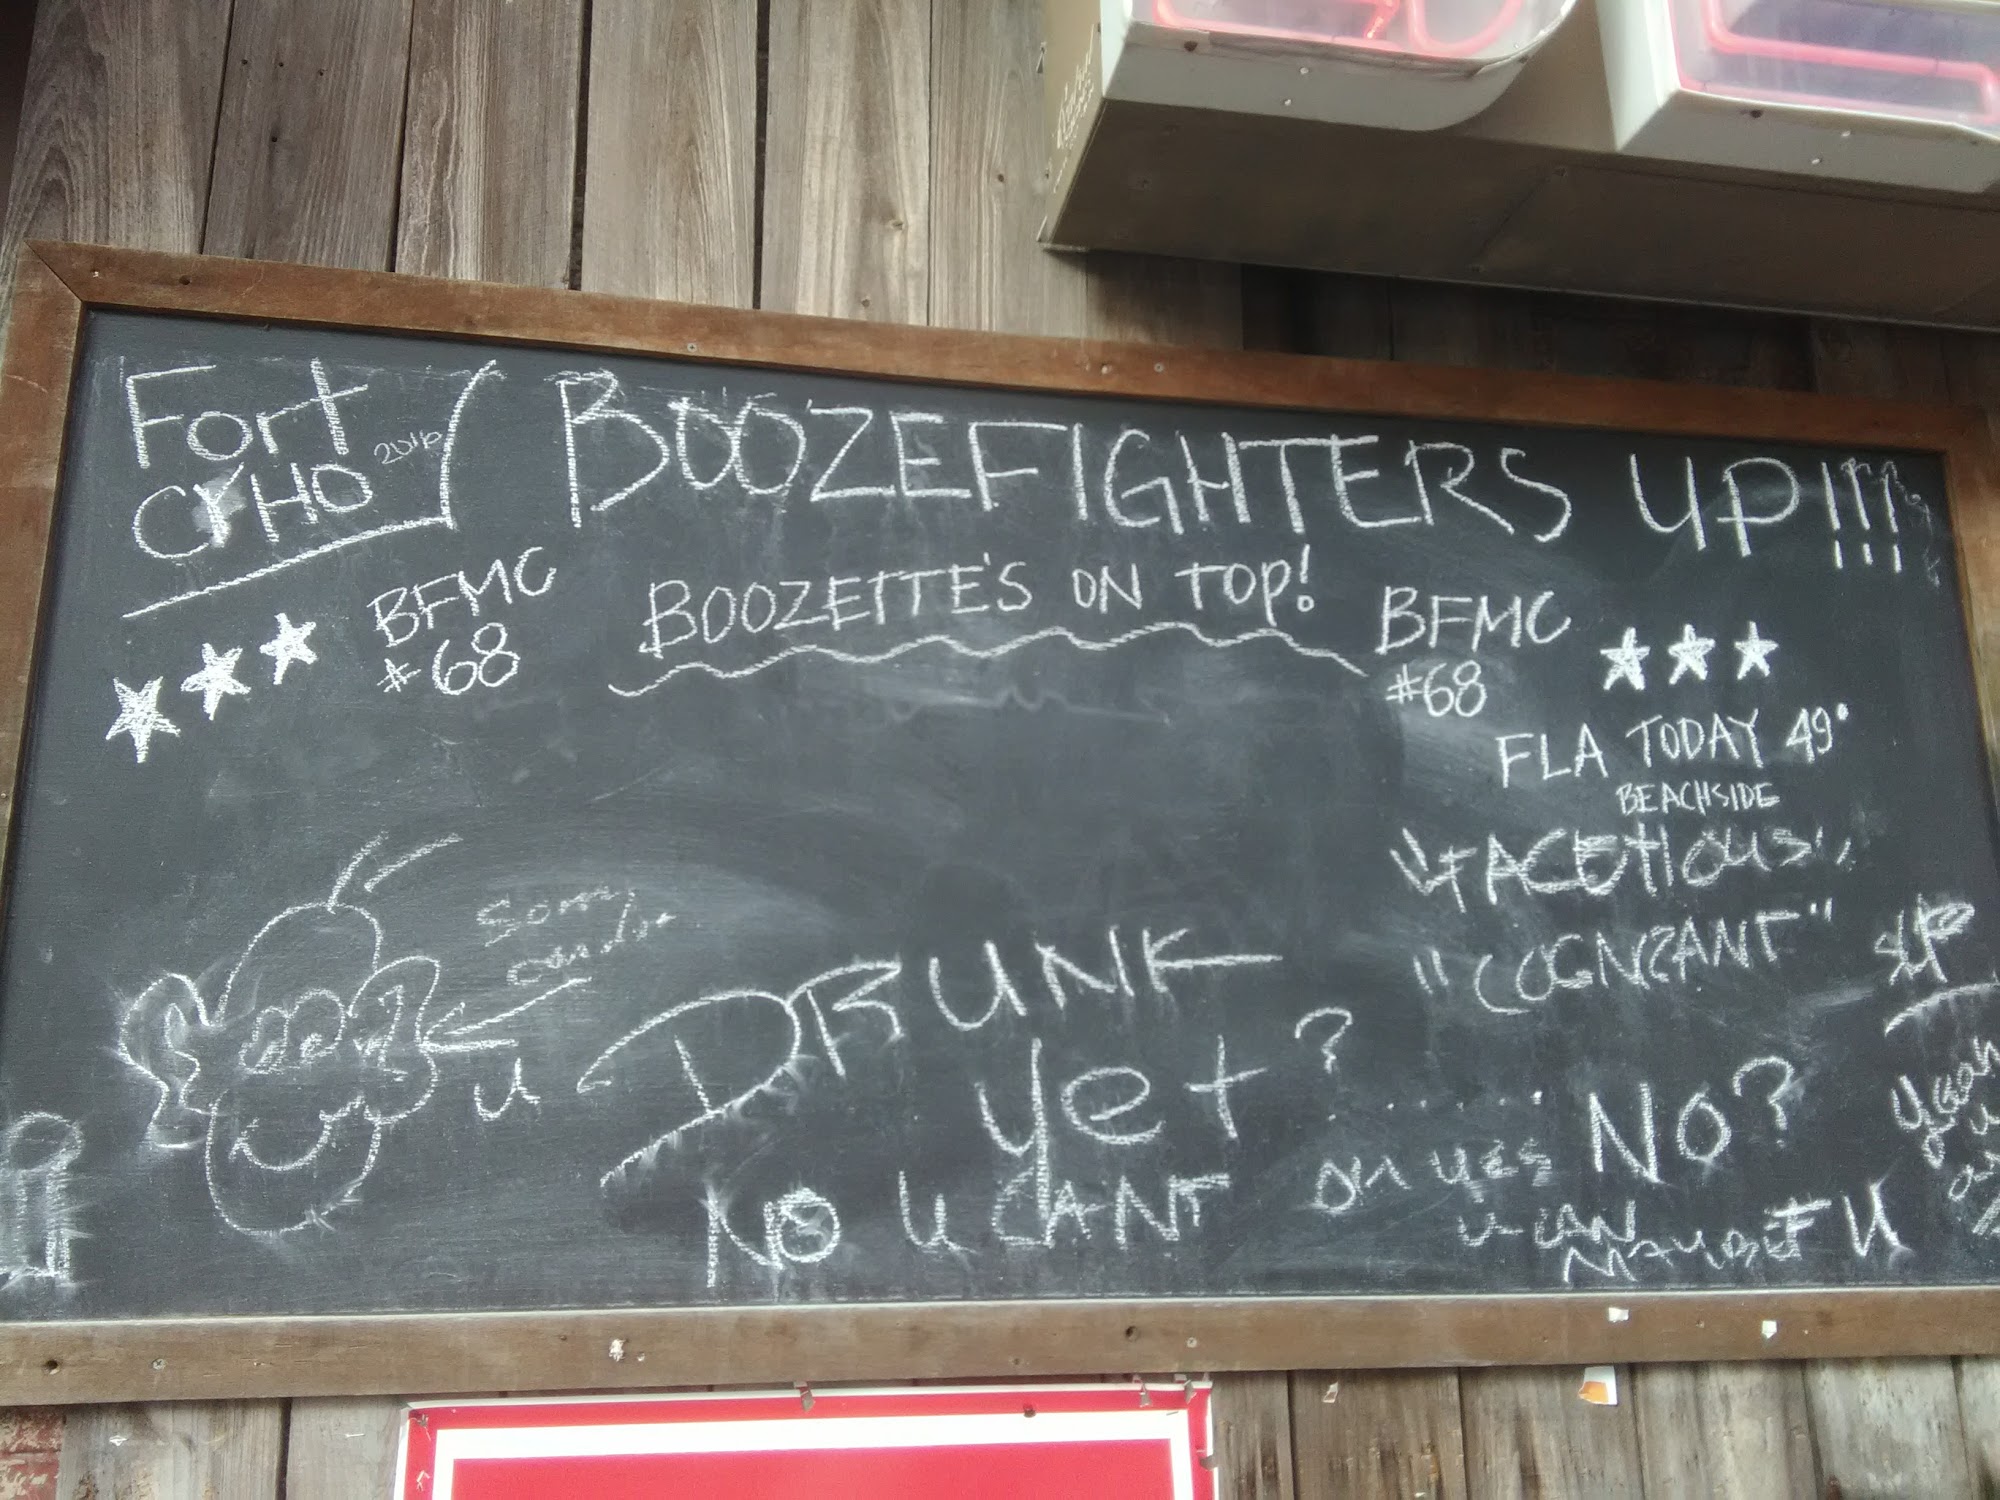 Fort
CYHO 2016
BOOZEFIGHTERS UP!!!
BFMC
#68
BOOZETTE'S ON TOP!
BFMC
#68
FLA TODAY 49°
BEACHSIDE
"FACETIOUS"
"COGNIZANT"
U
DRUNK
yet?
NO U CANT
NO?
U CAN
U
Yeah
U